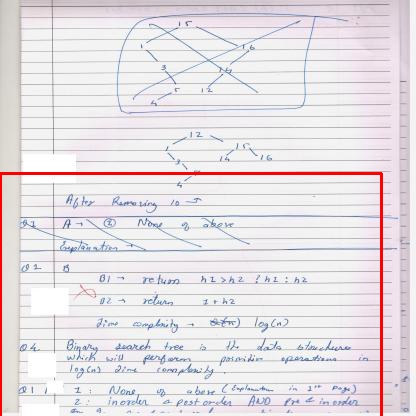 15
1 16
3 14
5 12
4
12
1 15
3 14 16
4
After Removing 10
Q1 A → ② None of above
Explanation →
Q2 B
B1 → return h1 > h2 ? h1 : h2
B2 → return 1 + h2
Time complexity → log(n)
Q4 Binary search tree is the data structure
which will perform operations in
log(n) time complexity.
Q1 1 : None of above (Explanation in 1st page)
2 : inorder & postorder AND Pre & inorder